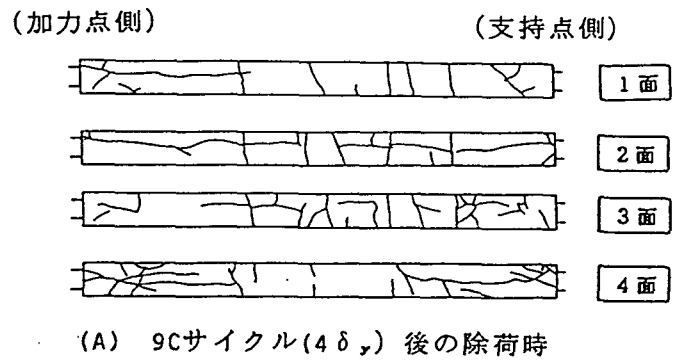 (加力点側) (支持点側)
1面
2面
3面
4面
(A) 9Cサイクル(4δy) 後の除荷時